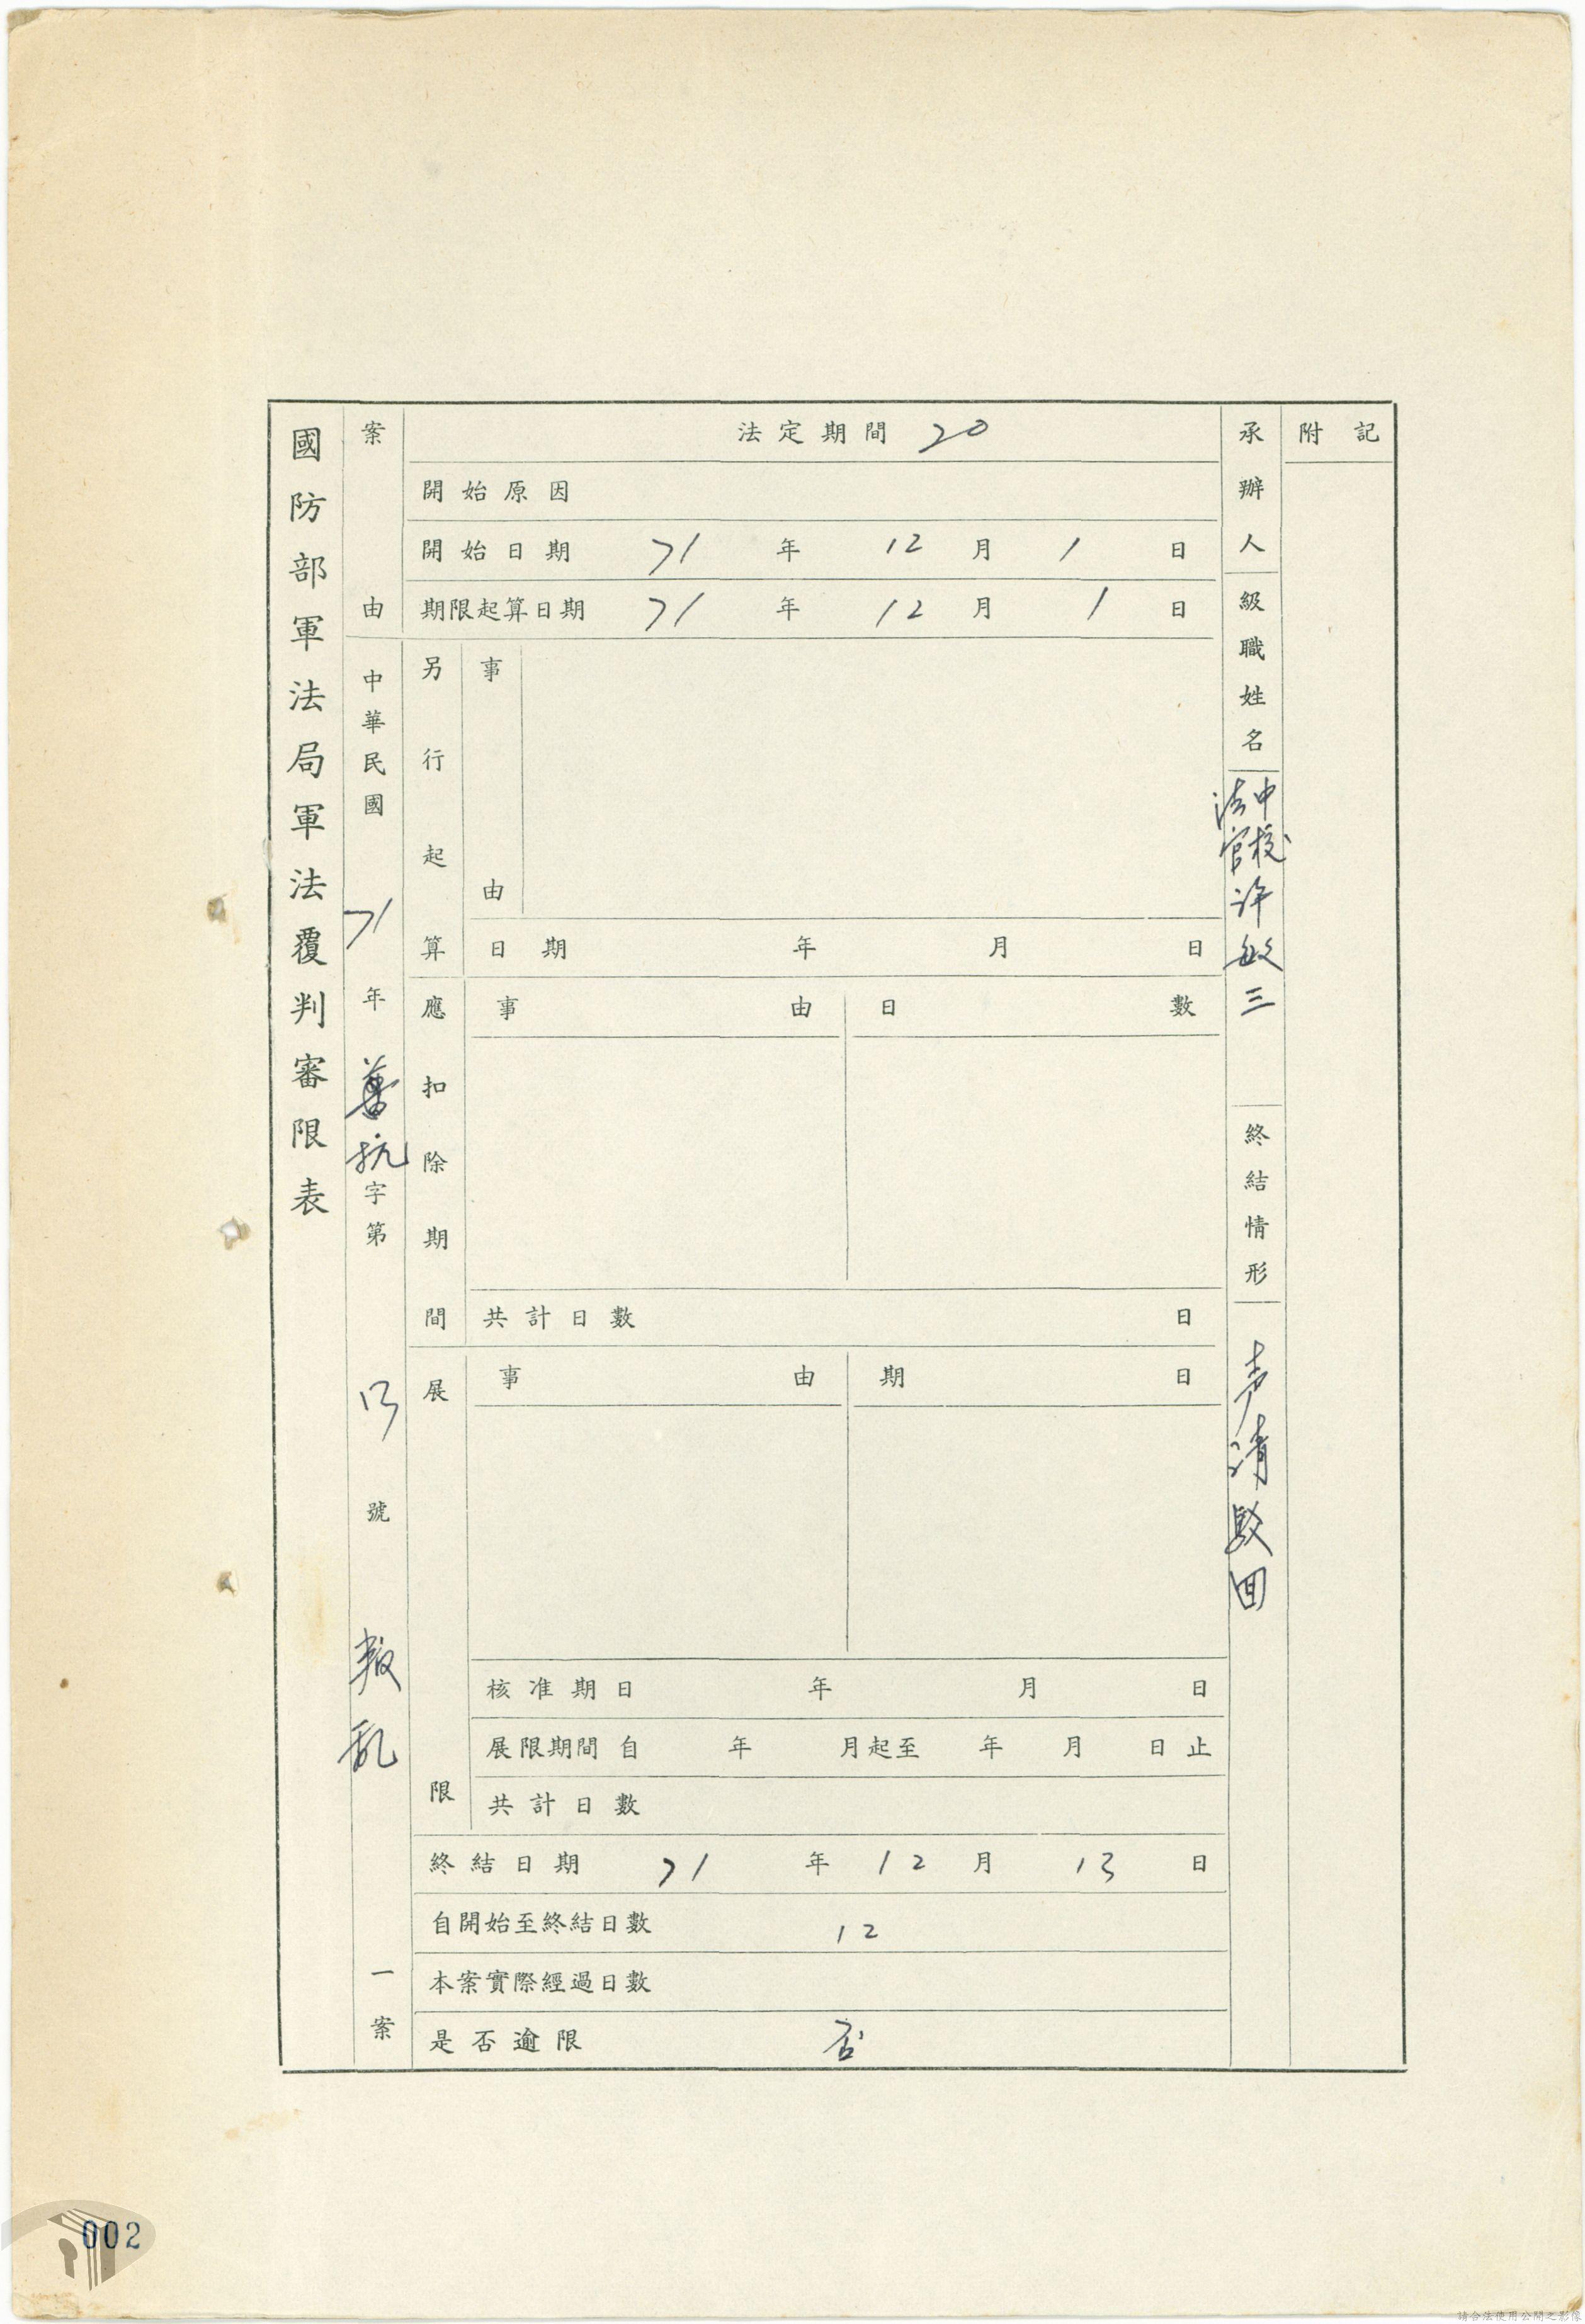 國防部軍法局軍法覆判審限表
案由
中華民國71年 抗字第 13 號 叛乱 一案
法定期間 20
開始原因
開始日期 71 年 12 月 1 日
期限起算日期 71 年 12 月 1 日
另行起算
事由
日期 年 月 日
應扣除期間
事由 日數
共計日數 日
展限
事由 期日
核准期日 年 月 日
展限期間 自 年 月起至 年 月 日止
共計日數
終結日期 71 年 12 月 13 日
自開始至終結日數 12
本案實際經過日數
是否逾限 否
承辦人
級職姓名
中校
法官
許敏三
終結情形
声請駁回
附記
002
請合法使用公開之影像